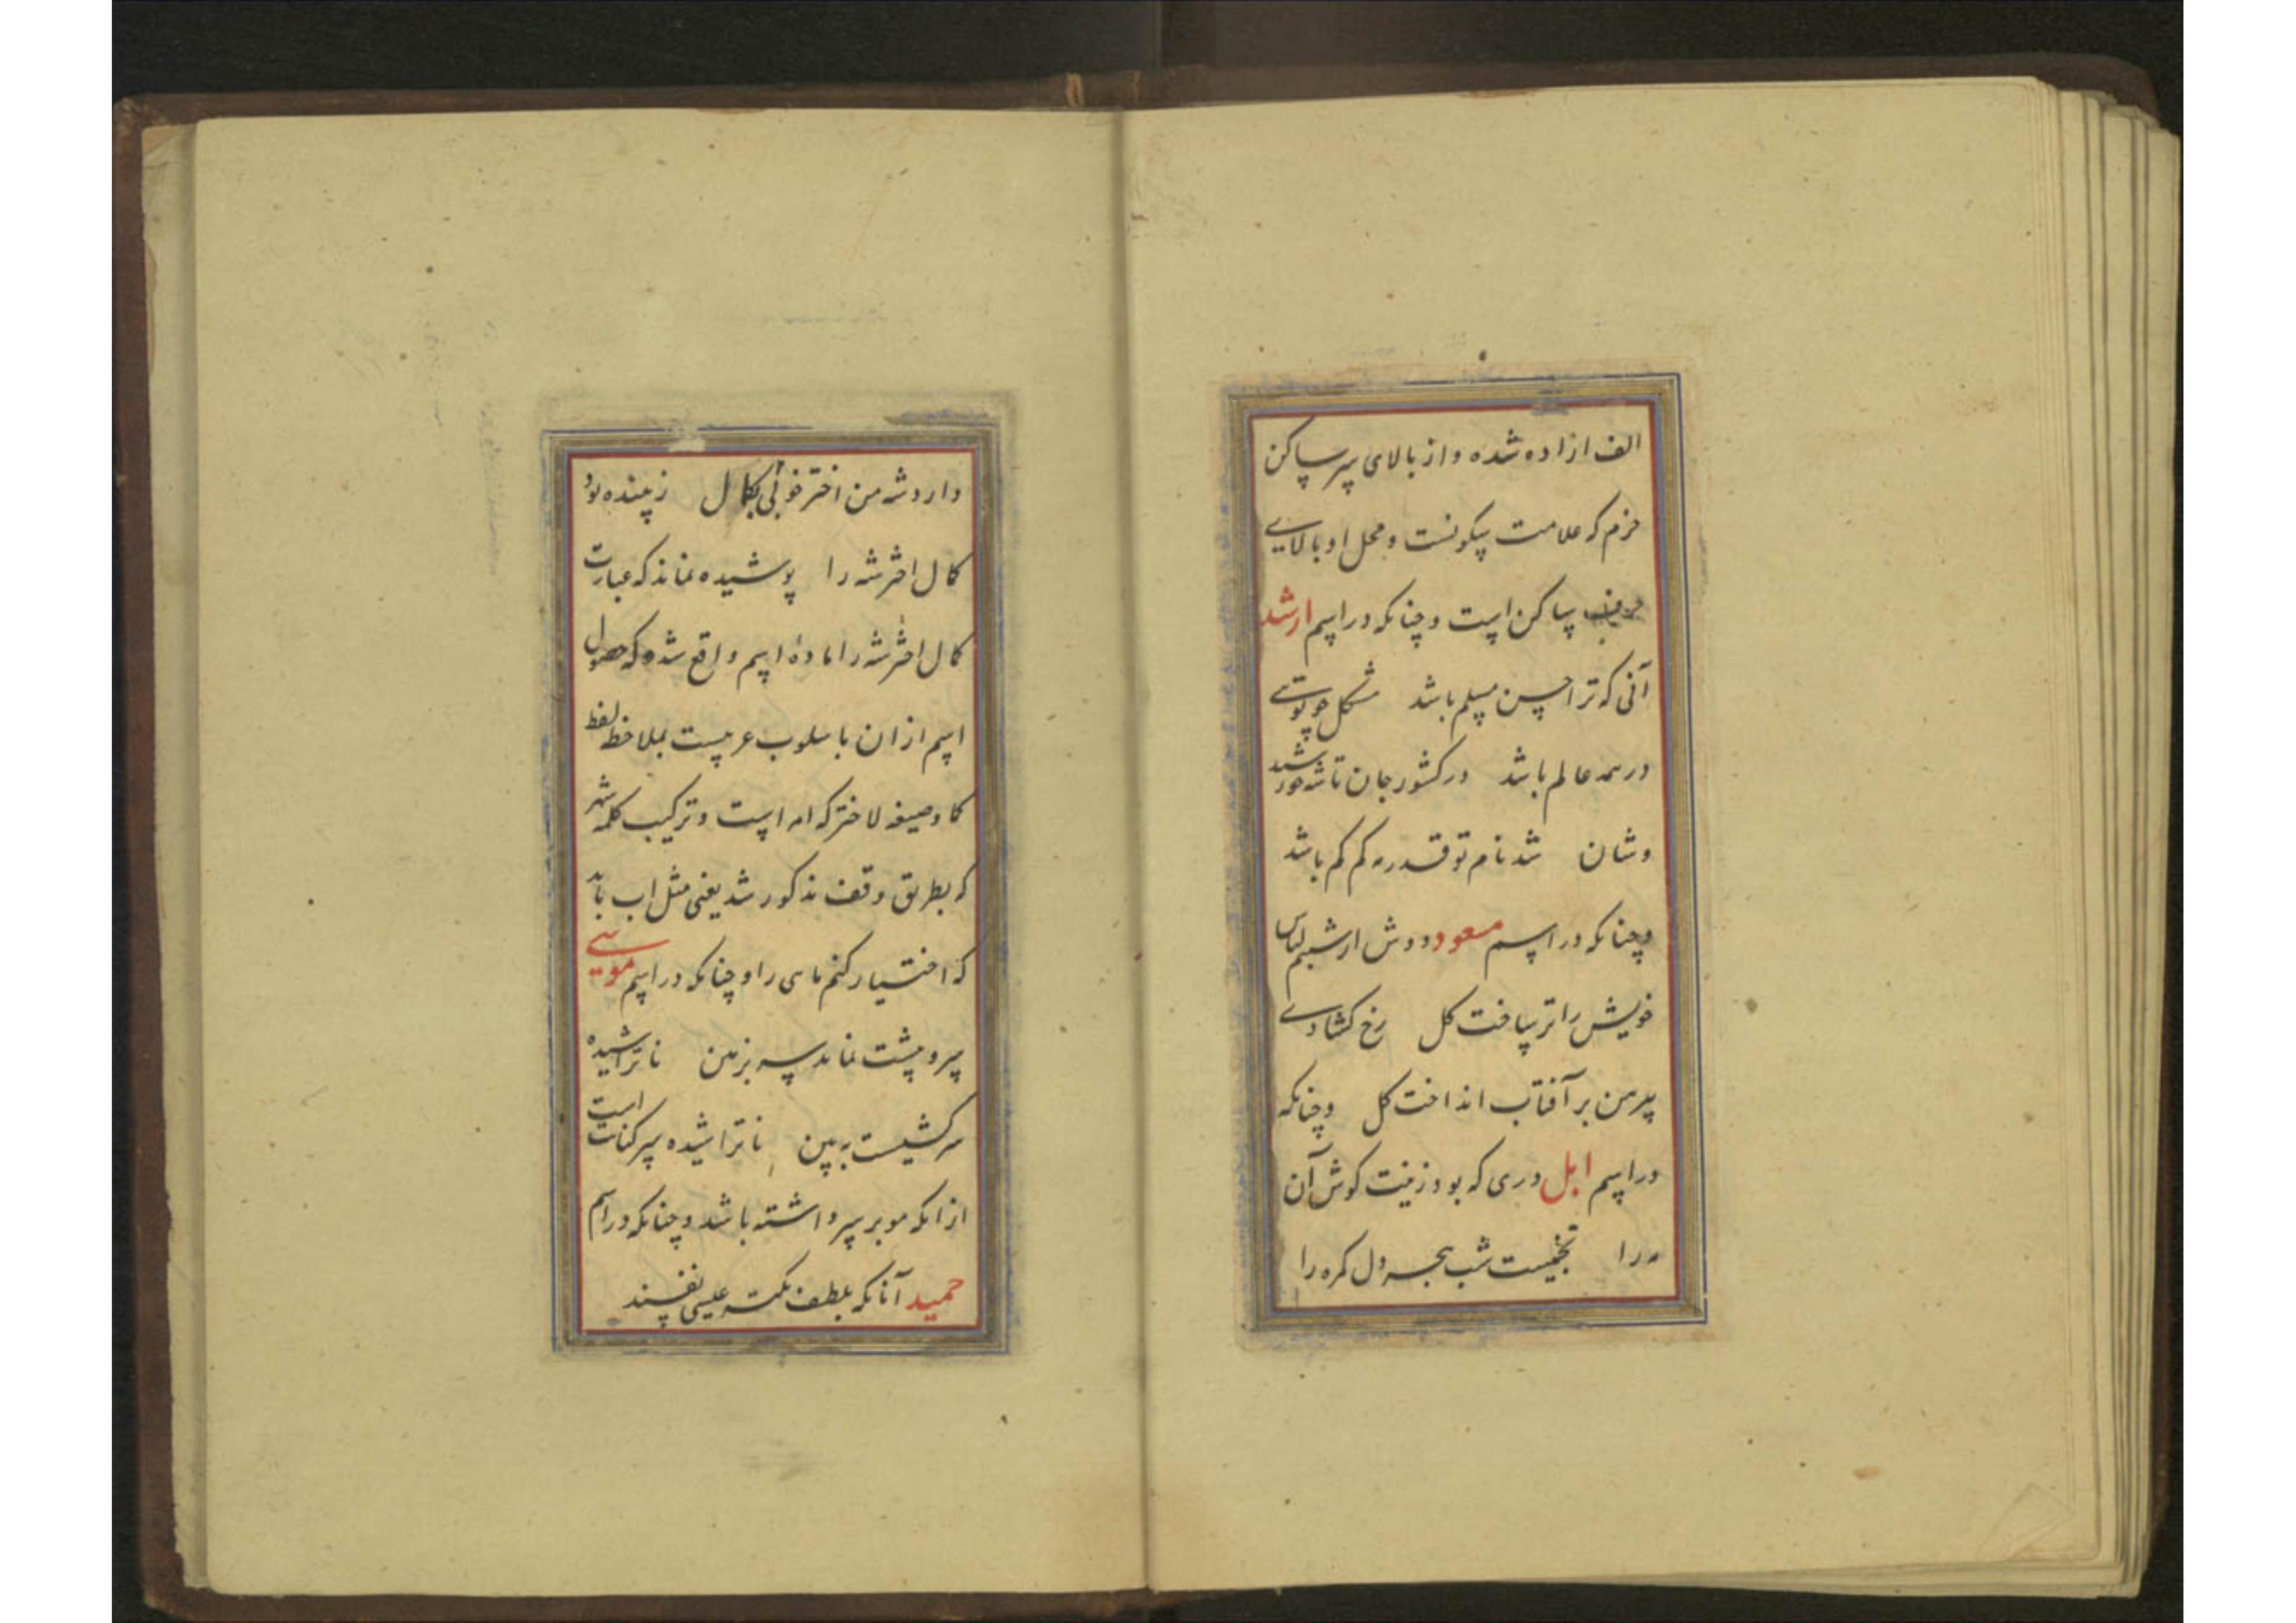 الف ازاده شده و از بالای سر ساکن
جزم که علامت سکونست و محل او بالای
حرف ساکن است و چنانکه در اسم ارشد
آنی که ترا حسن مسلم باشد مشکل چو تویی
در همه عالم باشد در کشور جان تا شه خورشید
وشان شد نام تو قدر مه کم کم باشد
و چنانکه در اسم مسعود دوش از شبنم لباس
خویش را تر ساخت کل رخ کشادی
پیرهن بر آفتاب انداخت کل و چنانکه
در اسم ابل دری که بود زینت کوش آن
مه را شب بجه دل کمره را
دارد شه من اختر خوبی بکمال زیبنده بود
کمال اختر شه را پوشیده نماند که عبارت
کمال اختر شه را ماده اسم واقع شده که حصول
اسم ازان باسلوب عربیست بملاحظه لفظ
کما وصیغه لاختر که امر است و ترکیب کلمه شهر
که بطریق وقف مذکور شد یعنی مثل اب باید
که اختیار کنم ماسی را و چنانکه در اسم موسی
سر و پشت نماند سه بزمین ناتراشیده
سرکشیست به بین ناتراشیده سر کنایت است
ازانکه مو بر سر داشته باشد و چنانکه در اسم
حمید آنانکه بلطف نکته عیسی نفسند